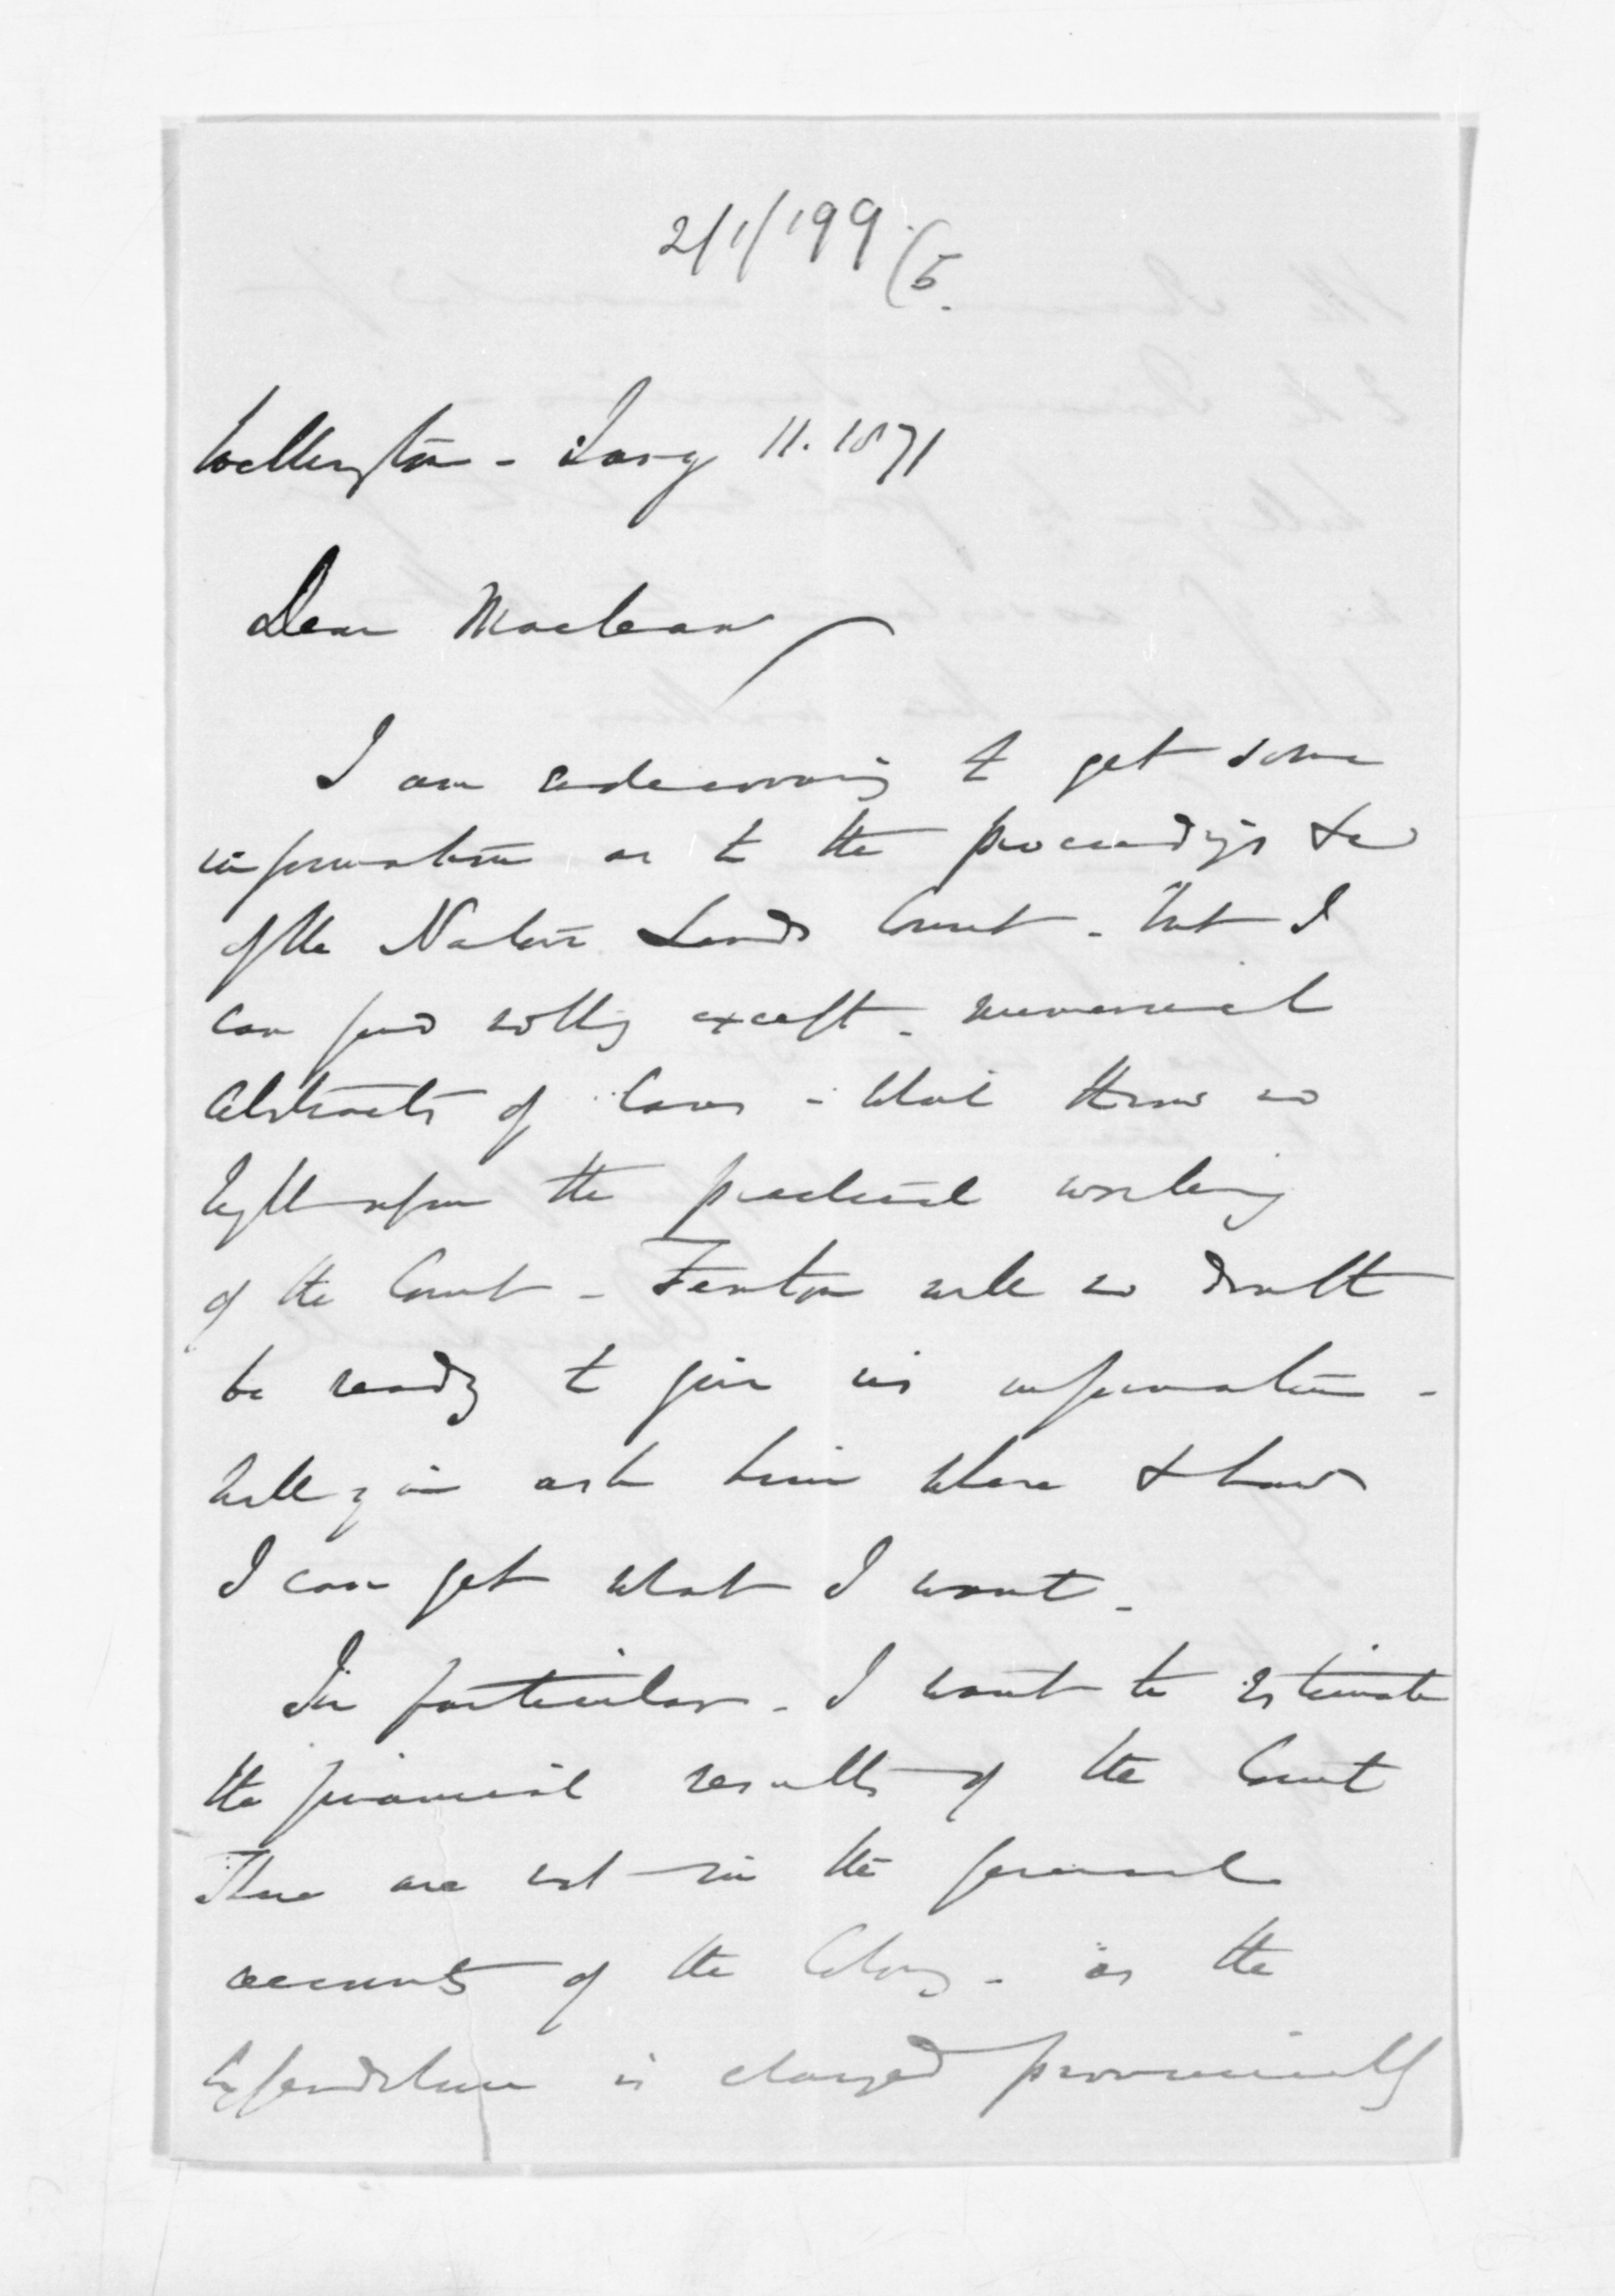 2/1/199 (5.
Wellington - Jany 11. 1871
Dear Maclean
I am endeavoring to get some
information as to the proceedings &c
of the Native Lands Court - but I
can find nothing except - numerical
abstracts of cases - which throw no
light upon the practical working
of the Court - Fenton will no doubt
be ready to give us information -
Will you ask him where & how
I can get what I want -
In particular - I want to estimate
the financial results of the Court
These are not in the general
accounts of the Colony - as the
Expenditure is charged provincially